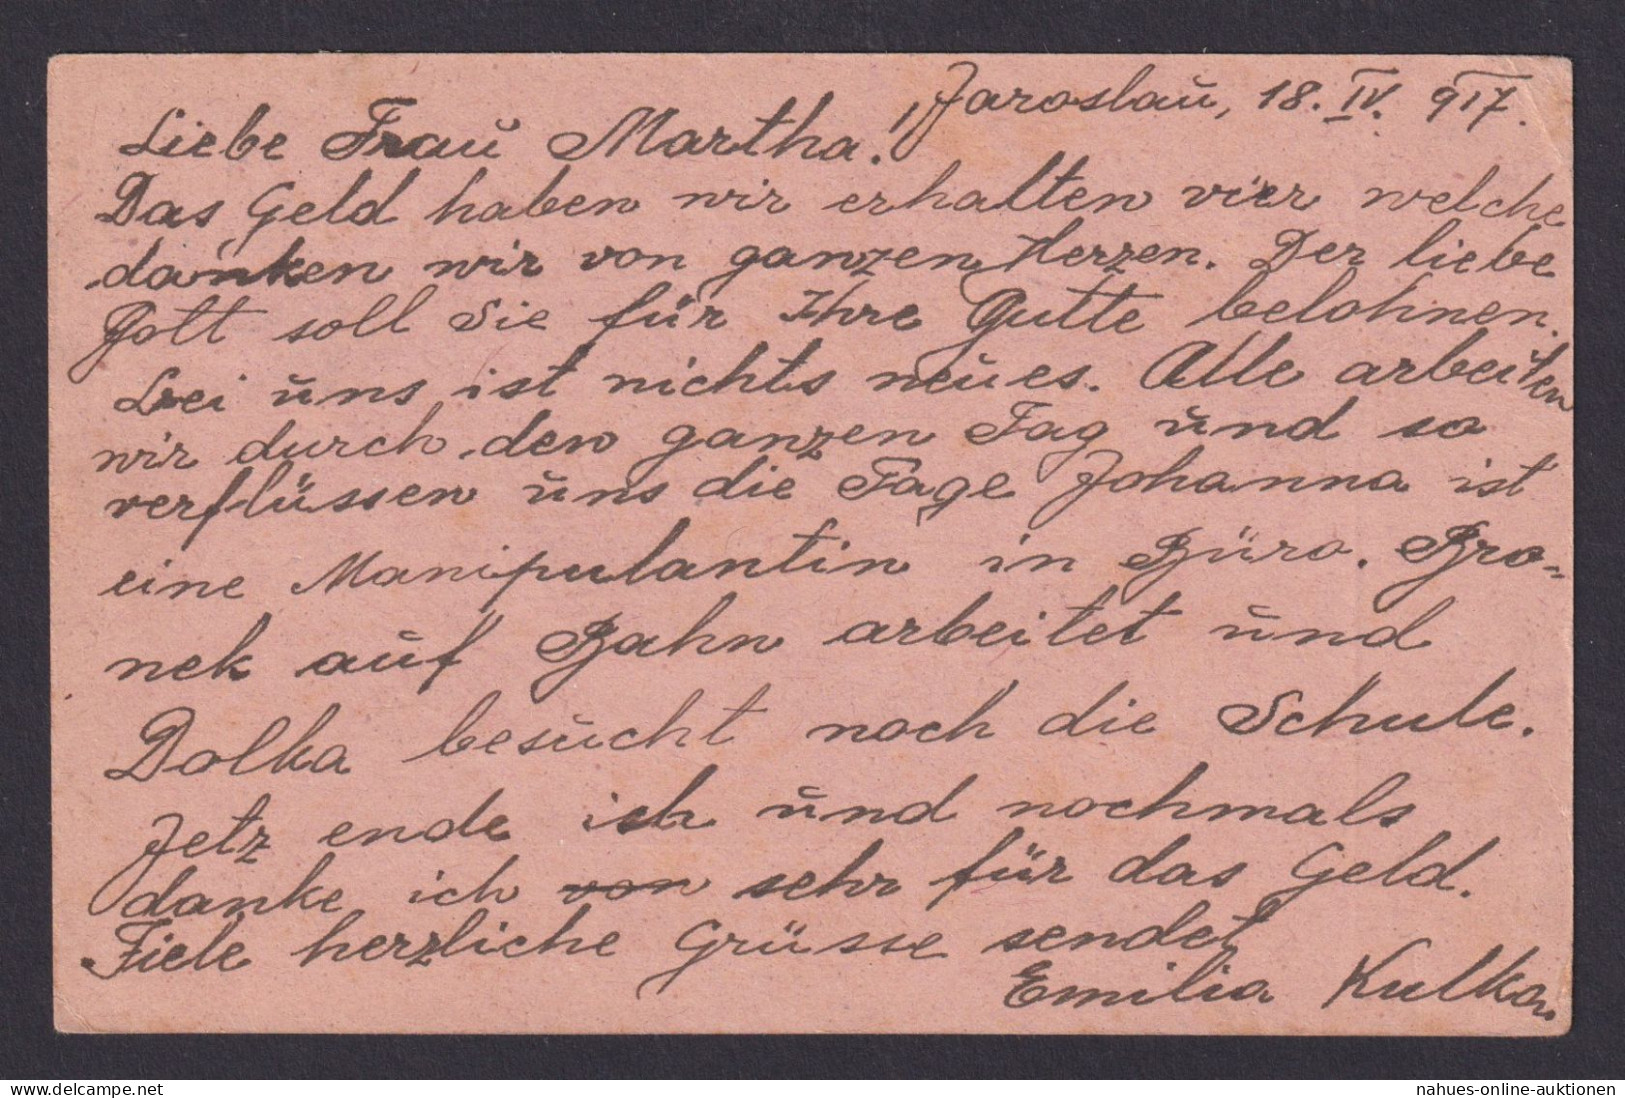 Jaroslau, 18. IV. 917.
Liebe Frau Martha!
Das Geld haben wir erhalten vier welche
danken wir von ganzen Herzen. Der liebe
Gott soll Sie für Ihre Gutte belohnen.
Bei uns ist nichts neues. Alle arbeiten
wir durch den ganzen Tag und so
verflüssen uns die Tage Johanna ist
eine Manipulantin in Büro. Bro-
nek auf Bahn arbeitet und
Dolka besucht noch die Schule.
Jetz ende ich und nochmals
danke ich von sehr für das Geld.
Fiele herzliche Grüsse sendet
Emilia Kulka.
nahues-online-auktionen